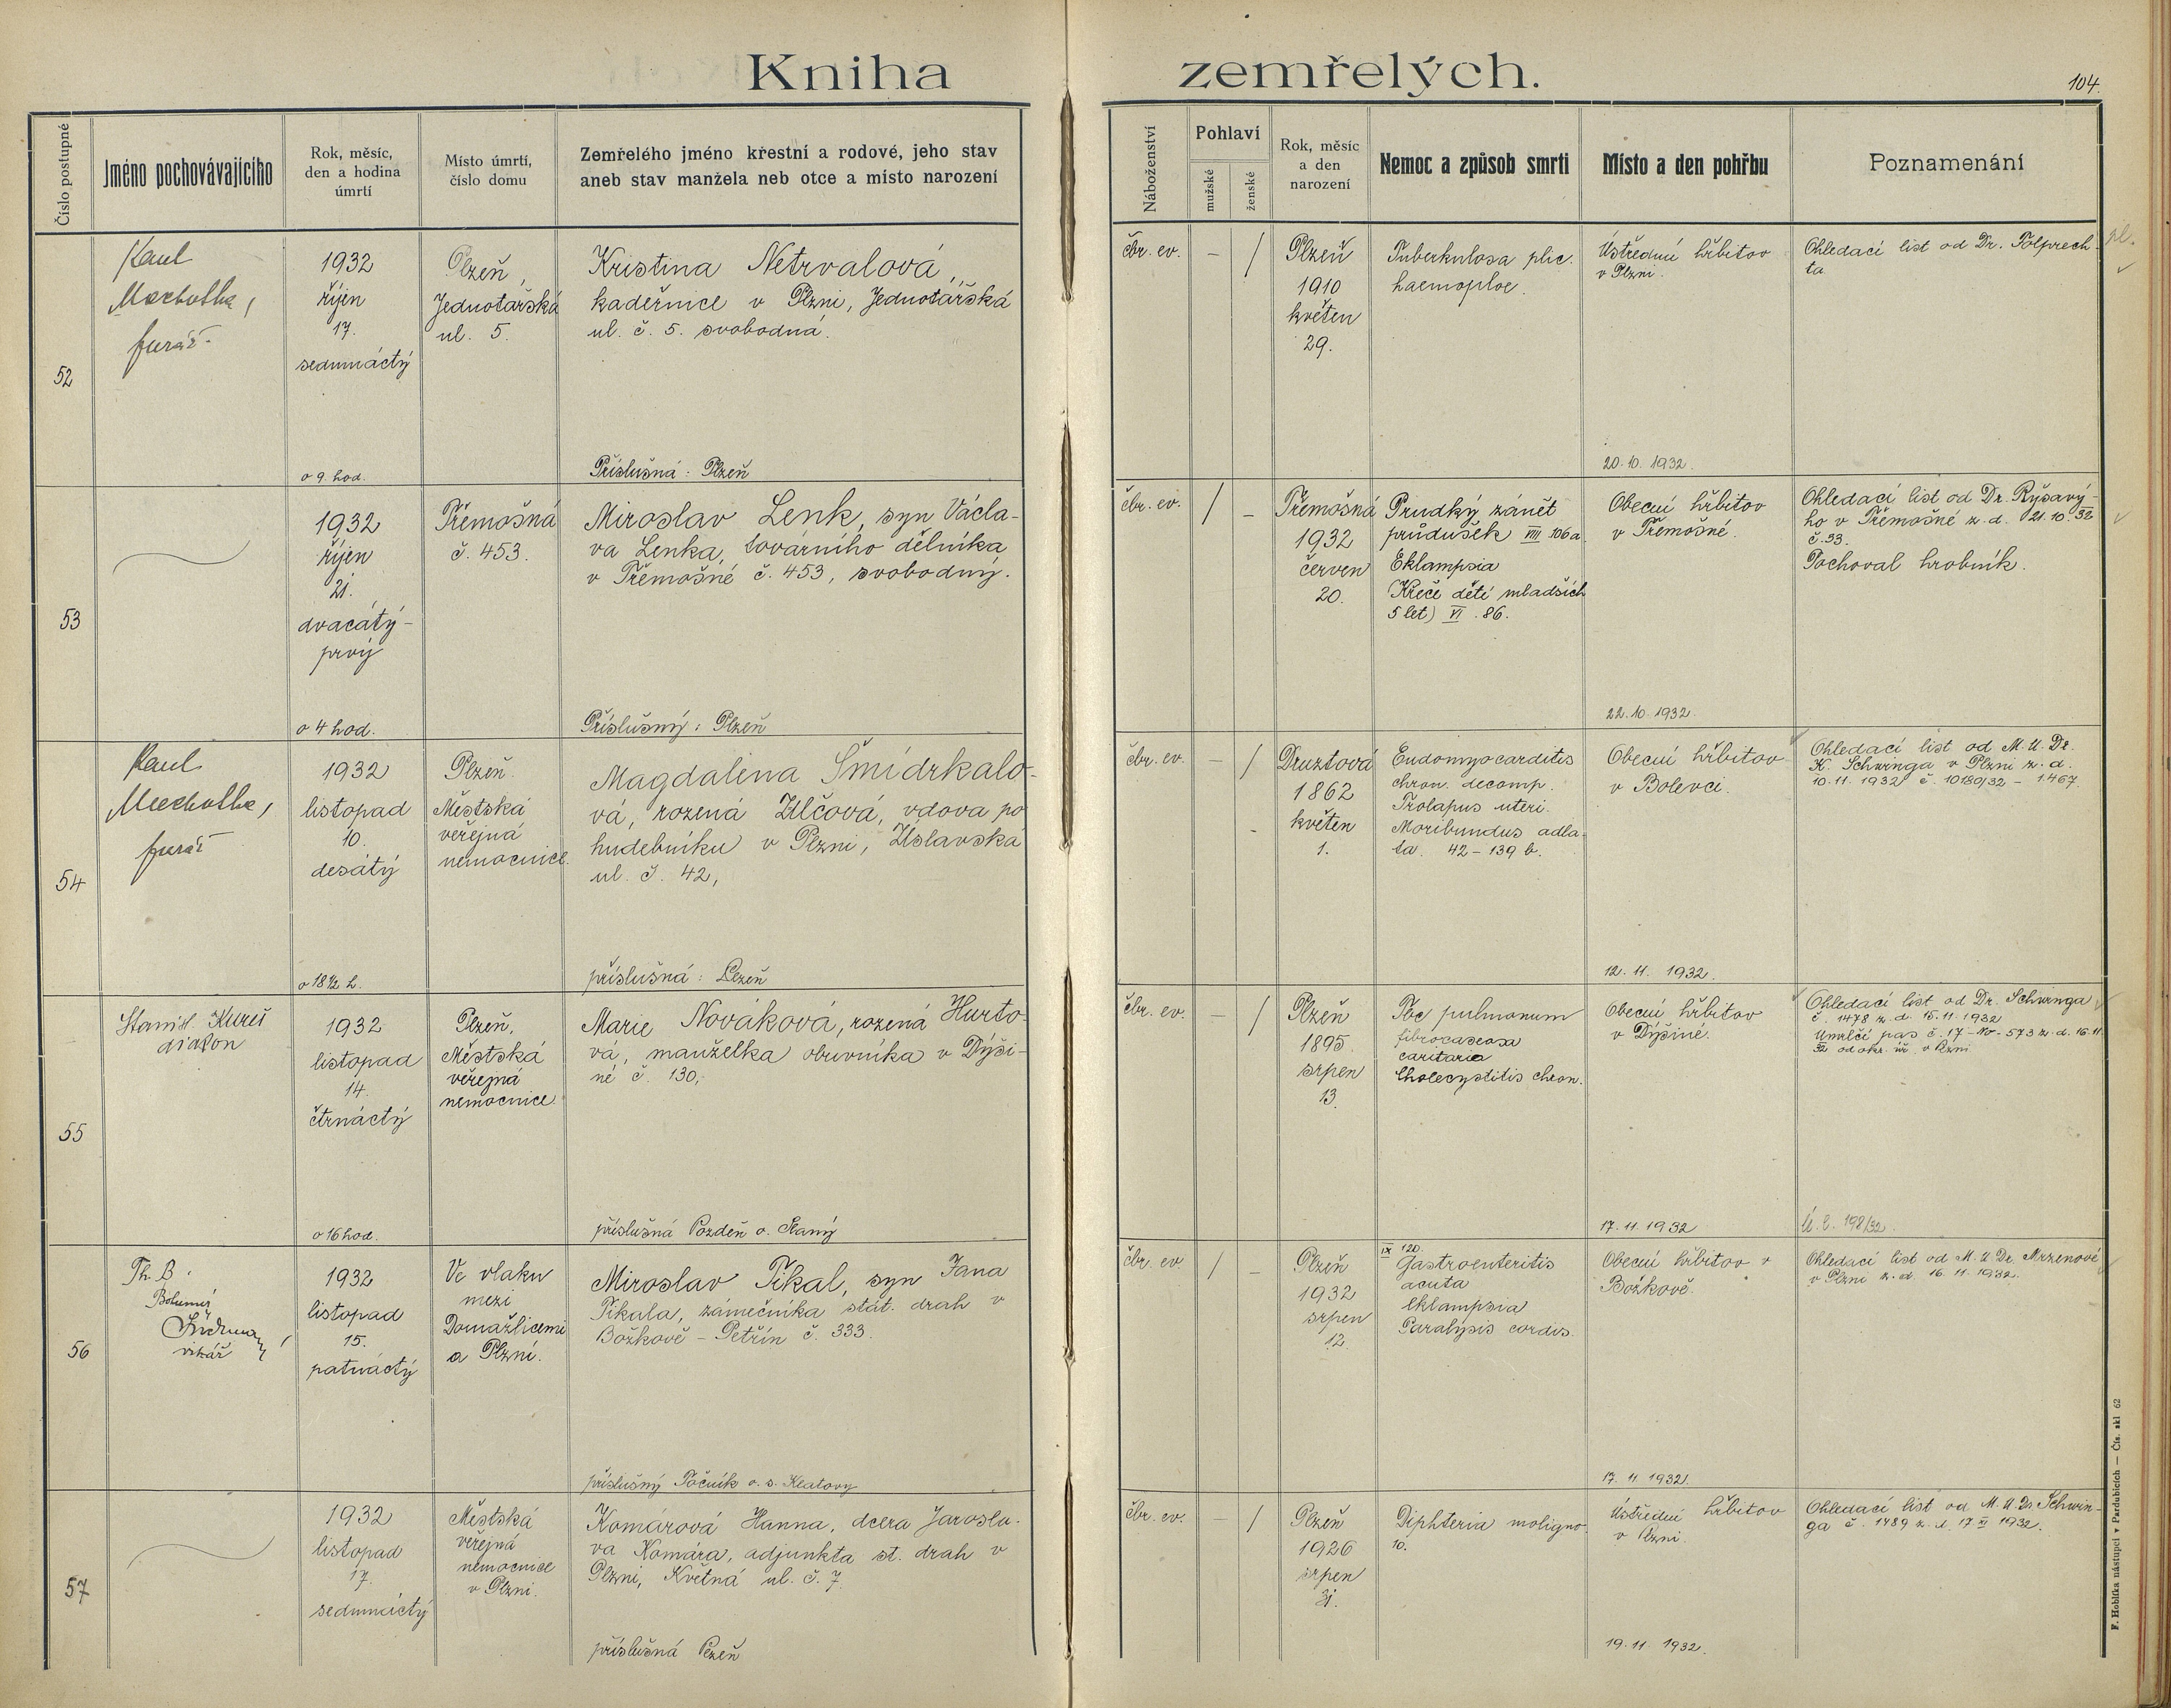 Kniha zemřelých.
104.
Číslo postupné
Jméno pochovávajícího
Rok, měsíc,
den a hodina
úmrtí
Místo úmrtí,
číslo domu
Zemřelého jméno křestní a rodové, jeho stav
aneb stav manžela neb otce a místo narození
Náboženství
Pohlaví
mužské
ženské
Rok, měsíc
a den
narození
Nemoc a způsob smrti
Místo a den pohřbu
Poznamenání
52
farář
1932
říjen
17.
sedmnáctý
o 9 hod.
Plzeň,
Jednotářská
ul. 5.
Kristina Netrvalová,
kadeřnice v Plzni, Jednotářská
ul. č. 5. svobodná.
Příslušná: Plzeň
čbr. ev.
–
/
Plzeň
1910
květen
29.
Tuberkulosa plic.
haemoptoe.
Ústřední hřbitov
v Plzni.
20.10.1932.
Ohledací list od Dr. Tölprech-
ta
53
1932
říjen
21.
dvacátý-
prvý
o 4 hod.
Třemošná
č. 453.
Miroslav Lenk, syn Václa-
va Lenka, továrního dělníka
v Třemošné č. 453, svobodný.
Příslušný: Plzeň
čbr. ev.
/
–
Třemošná
1932
červen
20.
Prudký zánět
průdušek VIII 106a
Eklampsia
(Křeče dětí mladších
5 let) VI. 86.
Obecní hřbitov
v Třemošné.
22.10.1932.
Ohledací list od Dr. Ryšavý-
ho v Třemošné z. d. 21.10.32
č. 33.
Pochoval hrobník.
54
farář
1932
listopad
10.
desátý
o 18½ h.
Plzeň.
Městská
veřejná
nemocnice.
Magdalena Šmídrkalo-
vá, rozená Vlčová, vdova po
hudebníku v Plzni, Úslavská
ul. č. 42,
příslušná: Plzeň
čbr. ev.
–
/
Druztová
1862
květen
1.
Endomyocarditis
chron. decomp.
Prolapus uteri.
Moribundus adla-
ta. 42-139 b.
Obecní hřbitov
v Bolevci.
12.11.1932.
Ohledací list od M.U.Dr.
K. Schwinga v Plzni z. d.
10.11.1932 č. 10180/32 - 1467.
55
Stanisl. Kureš
diakon
1932
listopad
14.
čtrnáctý
o 16 hod.
Plzeň,
Městská
veřejná
nemocnice.
Marie Nováková, rozená Hurto-
vá, manželka obuvníka v Dýši-
né č. 130,
příslušná Pozdeň o. Slaný
čbr. ev.
–
/
Plzeň
1895.
srpen
13.
Tbc pulmonum
fibrocaseosa
cavitaria
Cholecystitis chron.
Obecní hřbitov
v Dýšiné.
17.11.1932
Ohledací list od Dr. Schwinga
č. 1478 z. d. 15.11.1932
Umrlčí pas č. 17-No-573 z. d. 16.11.
32 od okr. úř. v Plzni.
č. l. 198/32
56
Th. B.
Bohumír
vikář
1932
listopad
15.
patnáctý
Ve vlaku
mezi
Domažlicemi
a Plzní.
Miroslav Pikal, syn Jana
Pikala, zámečníka stát. drah v
Božkově - Petřín č. 333.
příslušný Točník o. s. Klatovy
čbr. ev.
/
–
Plzeň
1932
srpen
12.
IX 120.
Gastroenteritis
acuta
Eklampsia
Paralysis cordis.
Obecní hřbitov v
Božkově.
17.11.1932.
Ohledací list od M.U.Dr. Mrzenové
v Plzni z. d. 16.11.1932.
57
1932
listopad
17.
sedmnáctý
Městská
veřejná
nemocnice
v Plzni.
Komárová Hanna, dcera Jarosla-
va Komára, adjunkta st. drah v
Plzni, Květná ul. č. 7.
příslušná Plzeň
čbr. ev.
–
/
Plzeň
1926
srpen
31.
Diphteria maligna.
10.
Ústřední hřbitov
v Plzni.
19.11.1932.
Ohledací list od M.U.Dr. Schwin-
ga č. 1489 z. d. 17 XI 1932.
F. Hoblíka nástupci v Pardubicích — Čís. skl 62